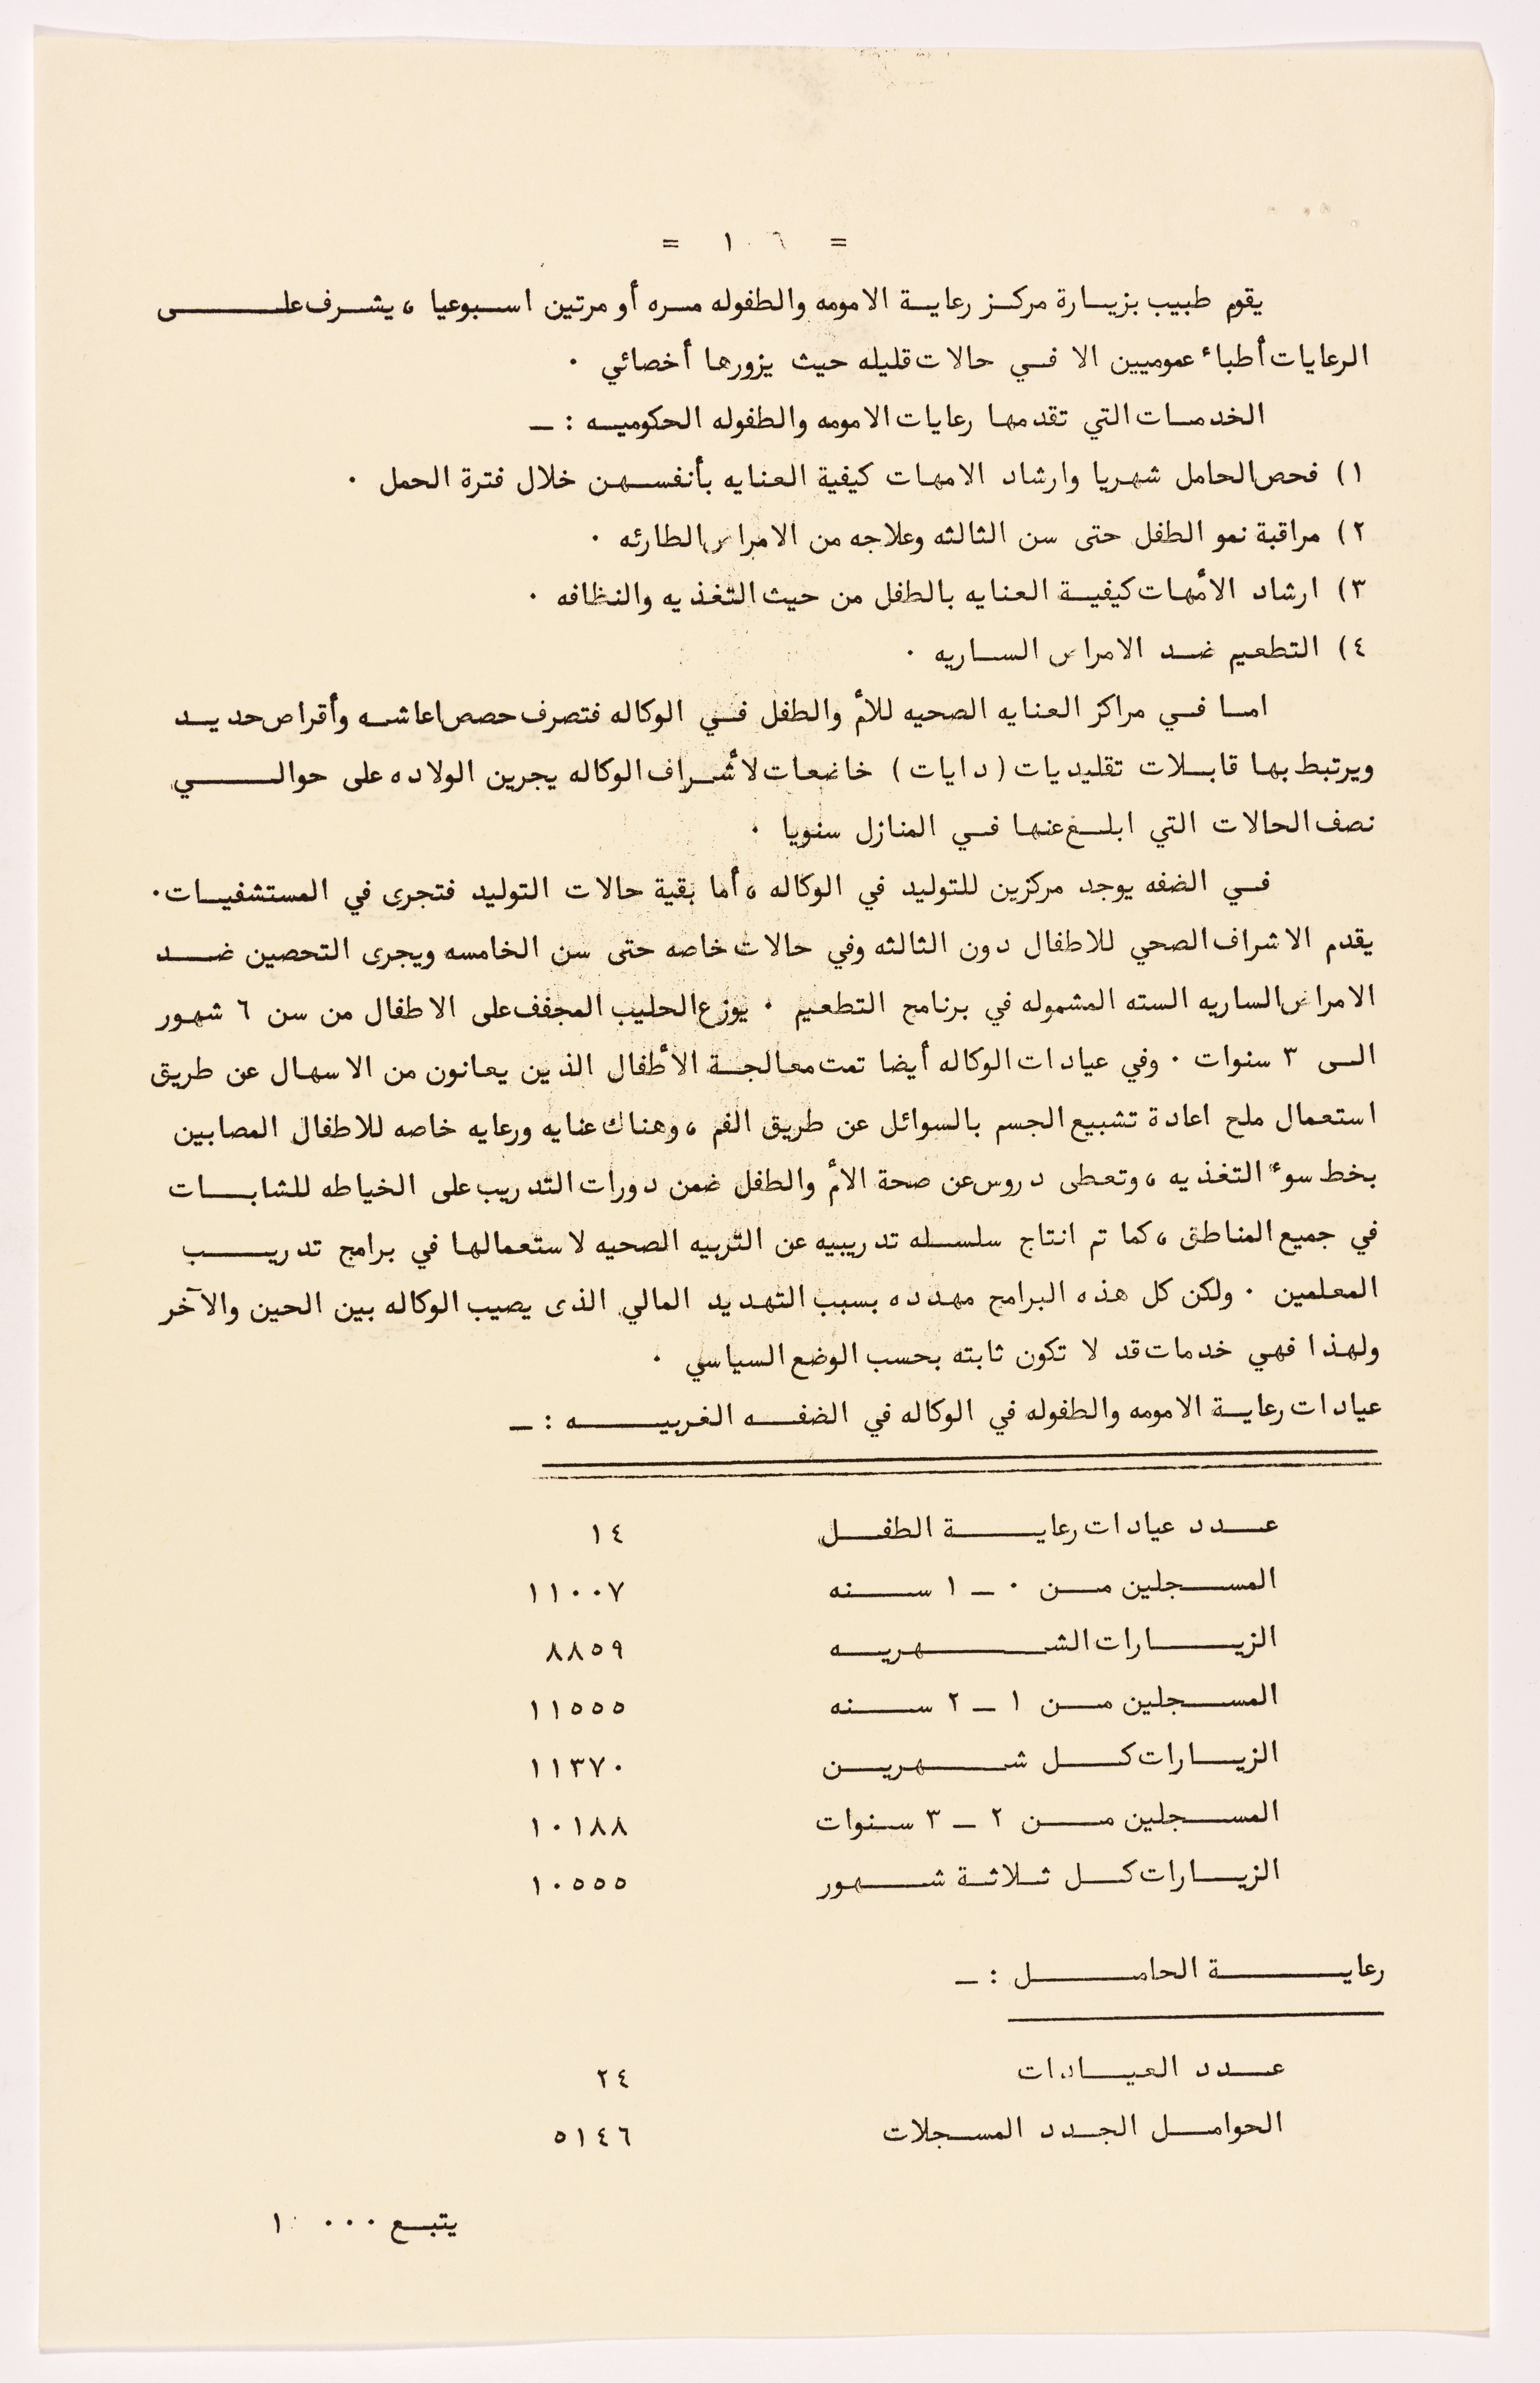 = ١٠٦ =
يقوم طبيب بزيارة مركز رعاية الامومه والطفوله مره أو مرتين اسبوعيا ، يشرف على
الرعايات أطباء عموميين الا في حالات قليله حيث يزورها أخصائي ٠
الخدمات التي تقدمها رعايات الامومه والطفوله الحكوميه : ـ
١) فحص الحامل شهريا وارشاد الامهات كيفية العنايه بأنفسهن خلال فترة الحمل ٠
٢) مراقبة نمو الطفل حتى سن الثالثه وعلاجه من الامراض الطارئه ٠
٣) ارشاد الأمهات كيفية العنايه بالطفل من حيث التغذيه والنظافه ٠
٤) التطعيم ضد الامراض الساريه ٠
اما في مراكز العنايه الصحيه للأم والطفل في الوكاله فتصرف حصص اعاشه وأقراص حديد
ويرتبط بها قابلات تقليديات (دايات) خاضعات لأشراف الوكاله يجرين الولاده على حوالي
نصف الحالات التي ابلغ عنها في المنازل سنويا ٠
في الضفه يوجد مركزين للتوليد في الوكاله ، أما بقية حالات التوليد فتجرى في المستشفيات ٠
يقدم الاشراف الصحي للاطفال دون الثالثه وفي حالات خاصه حتى سن الخامسه ويجرى التحصين ضد
الامراض الساريه السته المشموله في برنامج التطعيم ٠ يوزع الحليب المجفف على الاطفال من سن ٦ شهور
الى ٣ سنوات ٠ وفي عيادات الوكاله أيضا تمت معالجة الأطفال الذين يعانون من الاسهال عن طريق
استعمال ملح اعادة تشبيع الجسم بالسوائل عن طريق الفم ، وهناك عنايه ورعايه خاصه للاطفال المصابين
بخط سوء التغذيه ، وتعطى دروس عن صحة الأم والطفل ضمن دورات التدريب على الخياطه للشابات
في جميع المناطق ، كما تم انتاج سلسله تدريبيه عن التربيه الصحيه لاستعمالها في برامج تدريب
المعلمين ٠ ولكن كل هذه البرامج مهدده بسبب التهديد المالي الذى يصيب الوكاله بين الحين والآخر
ولهذا فهي خدمات قد لا تكون ثابته بحسب الوضع السياسي ٠
عيادات رعاية الامومه والطفوله في الوكاله في الضفه الغربيه : ـ
عدد عيادات رعاية الطفل ١٤
المسجلين من ٠ ـ ١ سنه ١١٠٠٧
الزيارات الشهريه ٨٨٥٩
المسجلين من ١ ـ ٢ سنه ١١٥٥٥
الزيارات كل شهرين ١١٣٧٠
المسجلين من ٢ ـ ٣ سنوات ١٠١٨٨
الزيارات كل ثلاثة شهور ١٠٥٥٥
رعاية الحامل : ـ
عدد العيادات ٢٤
الحوامل الجدد المسجلات ٥١٤٦
يتبع ٠٠٠